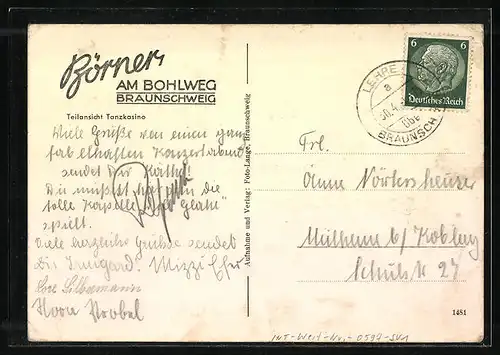 Börner
AM BOHLWEG
BRAUNSCHWEIG
Teilansicht Tanzkasino
Viele Grüße von einem ganz
fabelhaften Konzertabend
sendet Dir Käthe!
Du müßtest hier sein die
tolle Kapelle
spielt.
Viele herzliche Grüße sendet
Dir Irmgard. Mizzi
Hora Probel
Aufnahme und Verlag: Foto-Lange, Braunschweig
LEHRE
a
BRAUNSCH
6 6
Deutsches Reich
Frl.
Änne Nörtersheuser
Mülheim b/ Koblenz
Schulstr 27
1481
INT-Wert-Nr.-0597-SV1